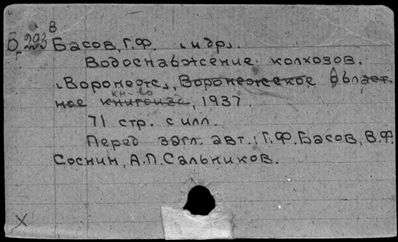 В
Б 293 Басов, Г.Ф. и др.
Водоснабжение колхозов.
"Воронеж", Воронежское област-
кн-во
ное книгоизд, 1937.
71 стр. с илл.
Перед загл. авт.: Г.Ф. Басов, В.Ф.
Соснин, А.П. Сальников.
X